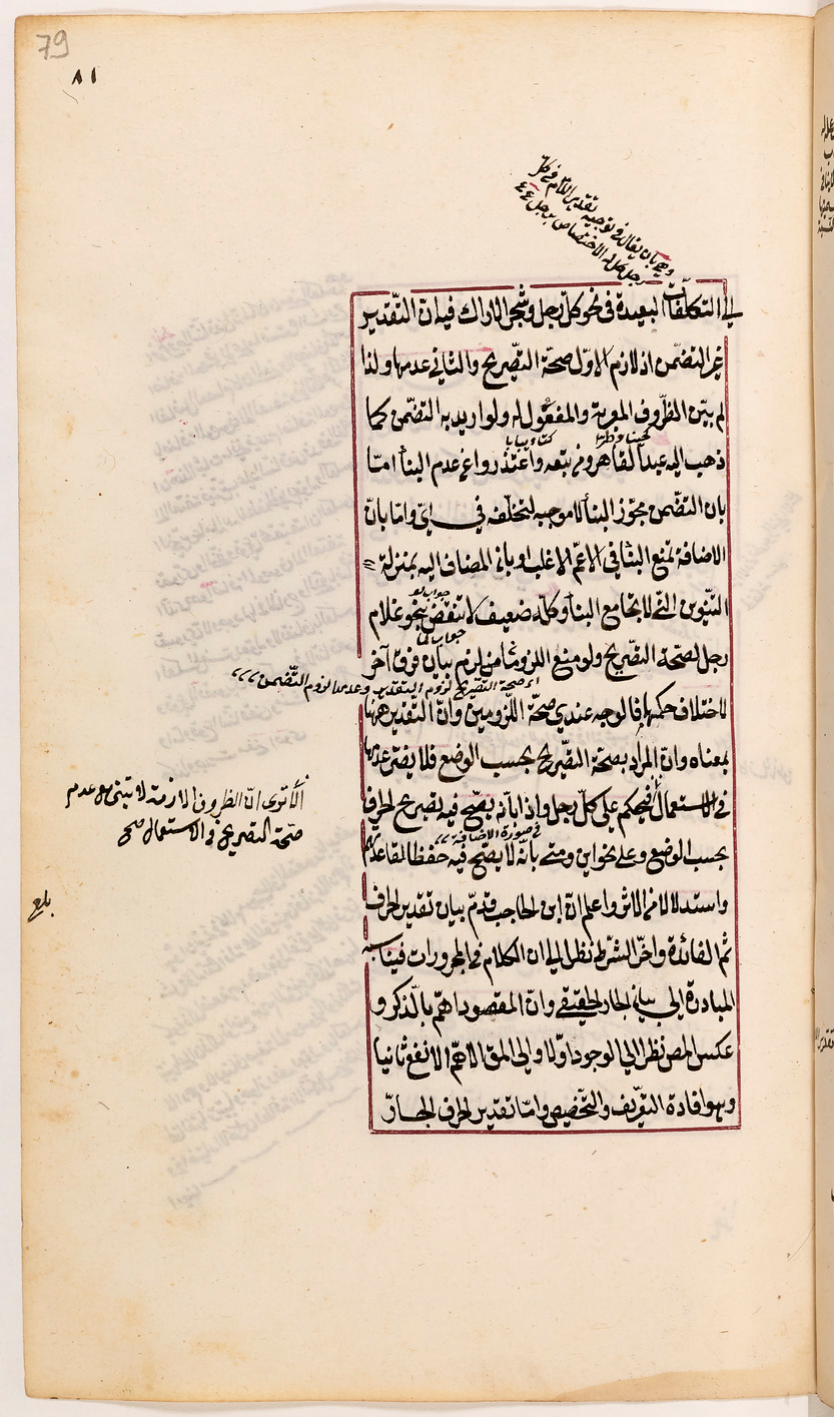 79
٨١
وهي بان يقال في توجيه تقدير اللام في كل
رجل كل له الاختصاص برجل ع ع
الى التكلفات البعيدة في نحو كل رجل وشجر الاراك فيه ان التقدير
غير التضمن اذ لازم الاول صحة التصريح والثاني عدمها ولذا
لم يبن الظروف المعربة والمفعول له ولو اريد به التضمن كما
ذهب اليه عبد القاهر ومن تبعه واعتذروا عن عدم البنأ امّا
بان التضمن مجوّز البنأ لا موجبه لتخلفه في اىّ وامّا بانّ
الاضافة تمنع البنأ في الاعمّ الاغلب او بان المضاف اليه بمنزلة
التنوين التي لا تجامع البنأ وكله ضعيف لانتقض بنحو غلام
جواب لو
رجل لصحة التصريح ولو منع اللزومان لزم بيان فرق آخر
جواب لما
اى صحة التصريح لزوم التقدير وعدمها لزوم التضمن
لاختلاف حكمها فالوجه عندي صحة اللزومين وانّ التقدير ههنا
بمعناه وانّ المراد بصحة التصريح بحسب الوضع فلا يضر عدمها
في الاستعمال فيحكم على كلّ رجل واذا بانه يصح فيه تصريح الحرف
في صورة الاضافة
بحسب الوضع وعلى نحو اين ومتى بانّه لا يصح فيه حفظا لقاعدتهم
واستدلالا من الاثر واعلم انّ ابن الحاجب قدّم بيان تقدير الحرف
ثم الفائدة واخّر الشرط نظرا الى ان الكلام في المجرورات فيناسبه
المبادرة الى بيان الجار الحقيقي وانّ المقصود اهمّ بالذكر و
عكس المص نظرا الى الوجود اولا والى المق الاهمّ الانفع ثانيا
وهو افادة التعريف والتخصيص وامّا تقدير الحرف الجارّ
ألا ترى انّ الظروف اللازمة لا تبنى مع عدم
صحّة التصريح في الاستعمال صح
بلغ